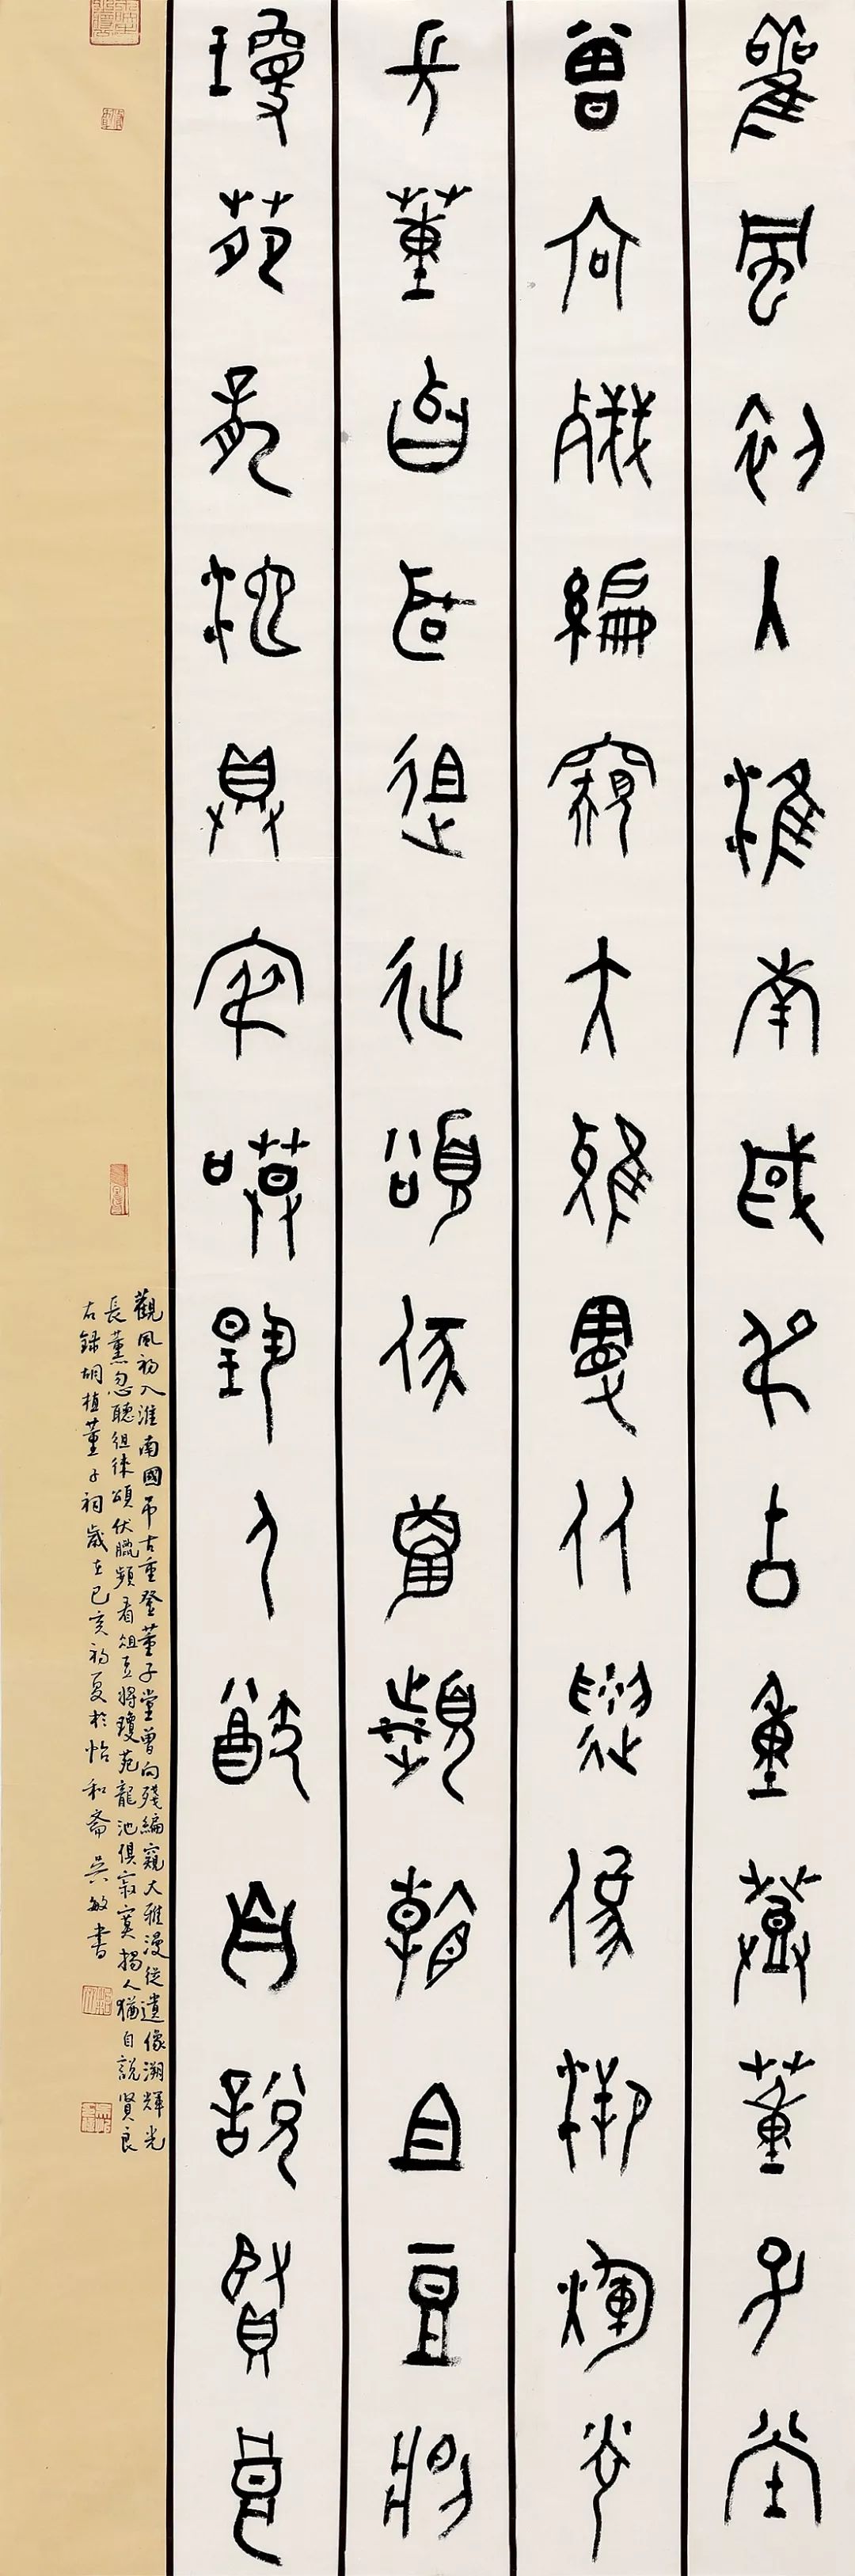 觀風初入淮南國弔古重登董子堂
曾向殘編窺大雅漫從遺像溯輝光
長薰忽聽徂徠頌伏臘頻看俎豆將
瓊苑龍池俱寂寞人猶自說賢良
觀風初入淮南國弔古重登董子堂曾向殘編窺大雅漫從遺像溯輝光
長薰忽聽徂徠頌伏臘頻看俎豆將瓊苑龍池俱寂寞揚人猶自說賢良
右録胡植董子祠歲在己亥初夏於怡和齋吳敏書